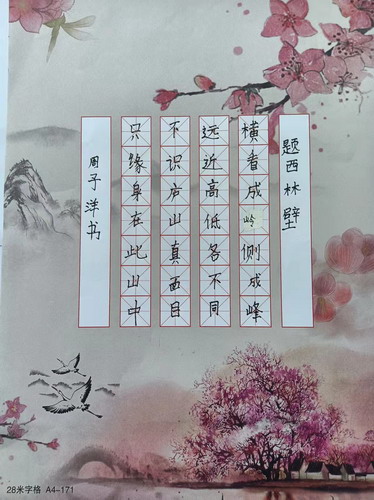 题西林壁
横看成岭侧成峰
远近高低各不同
不识庐山真面目
只缘身在此山中
周子洋书
28米字格 A4-171